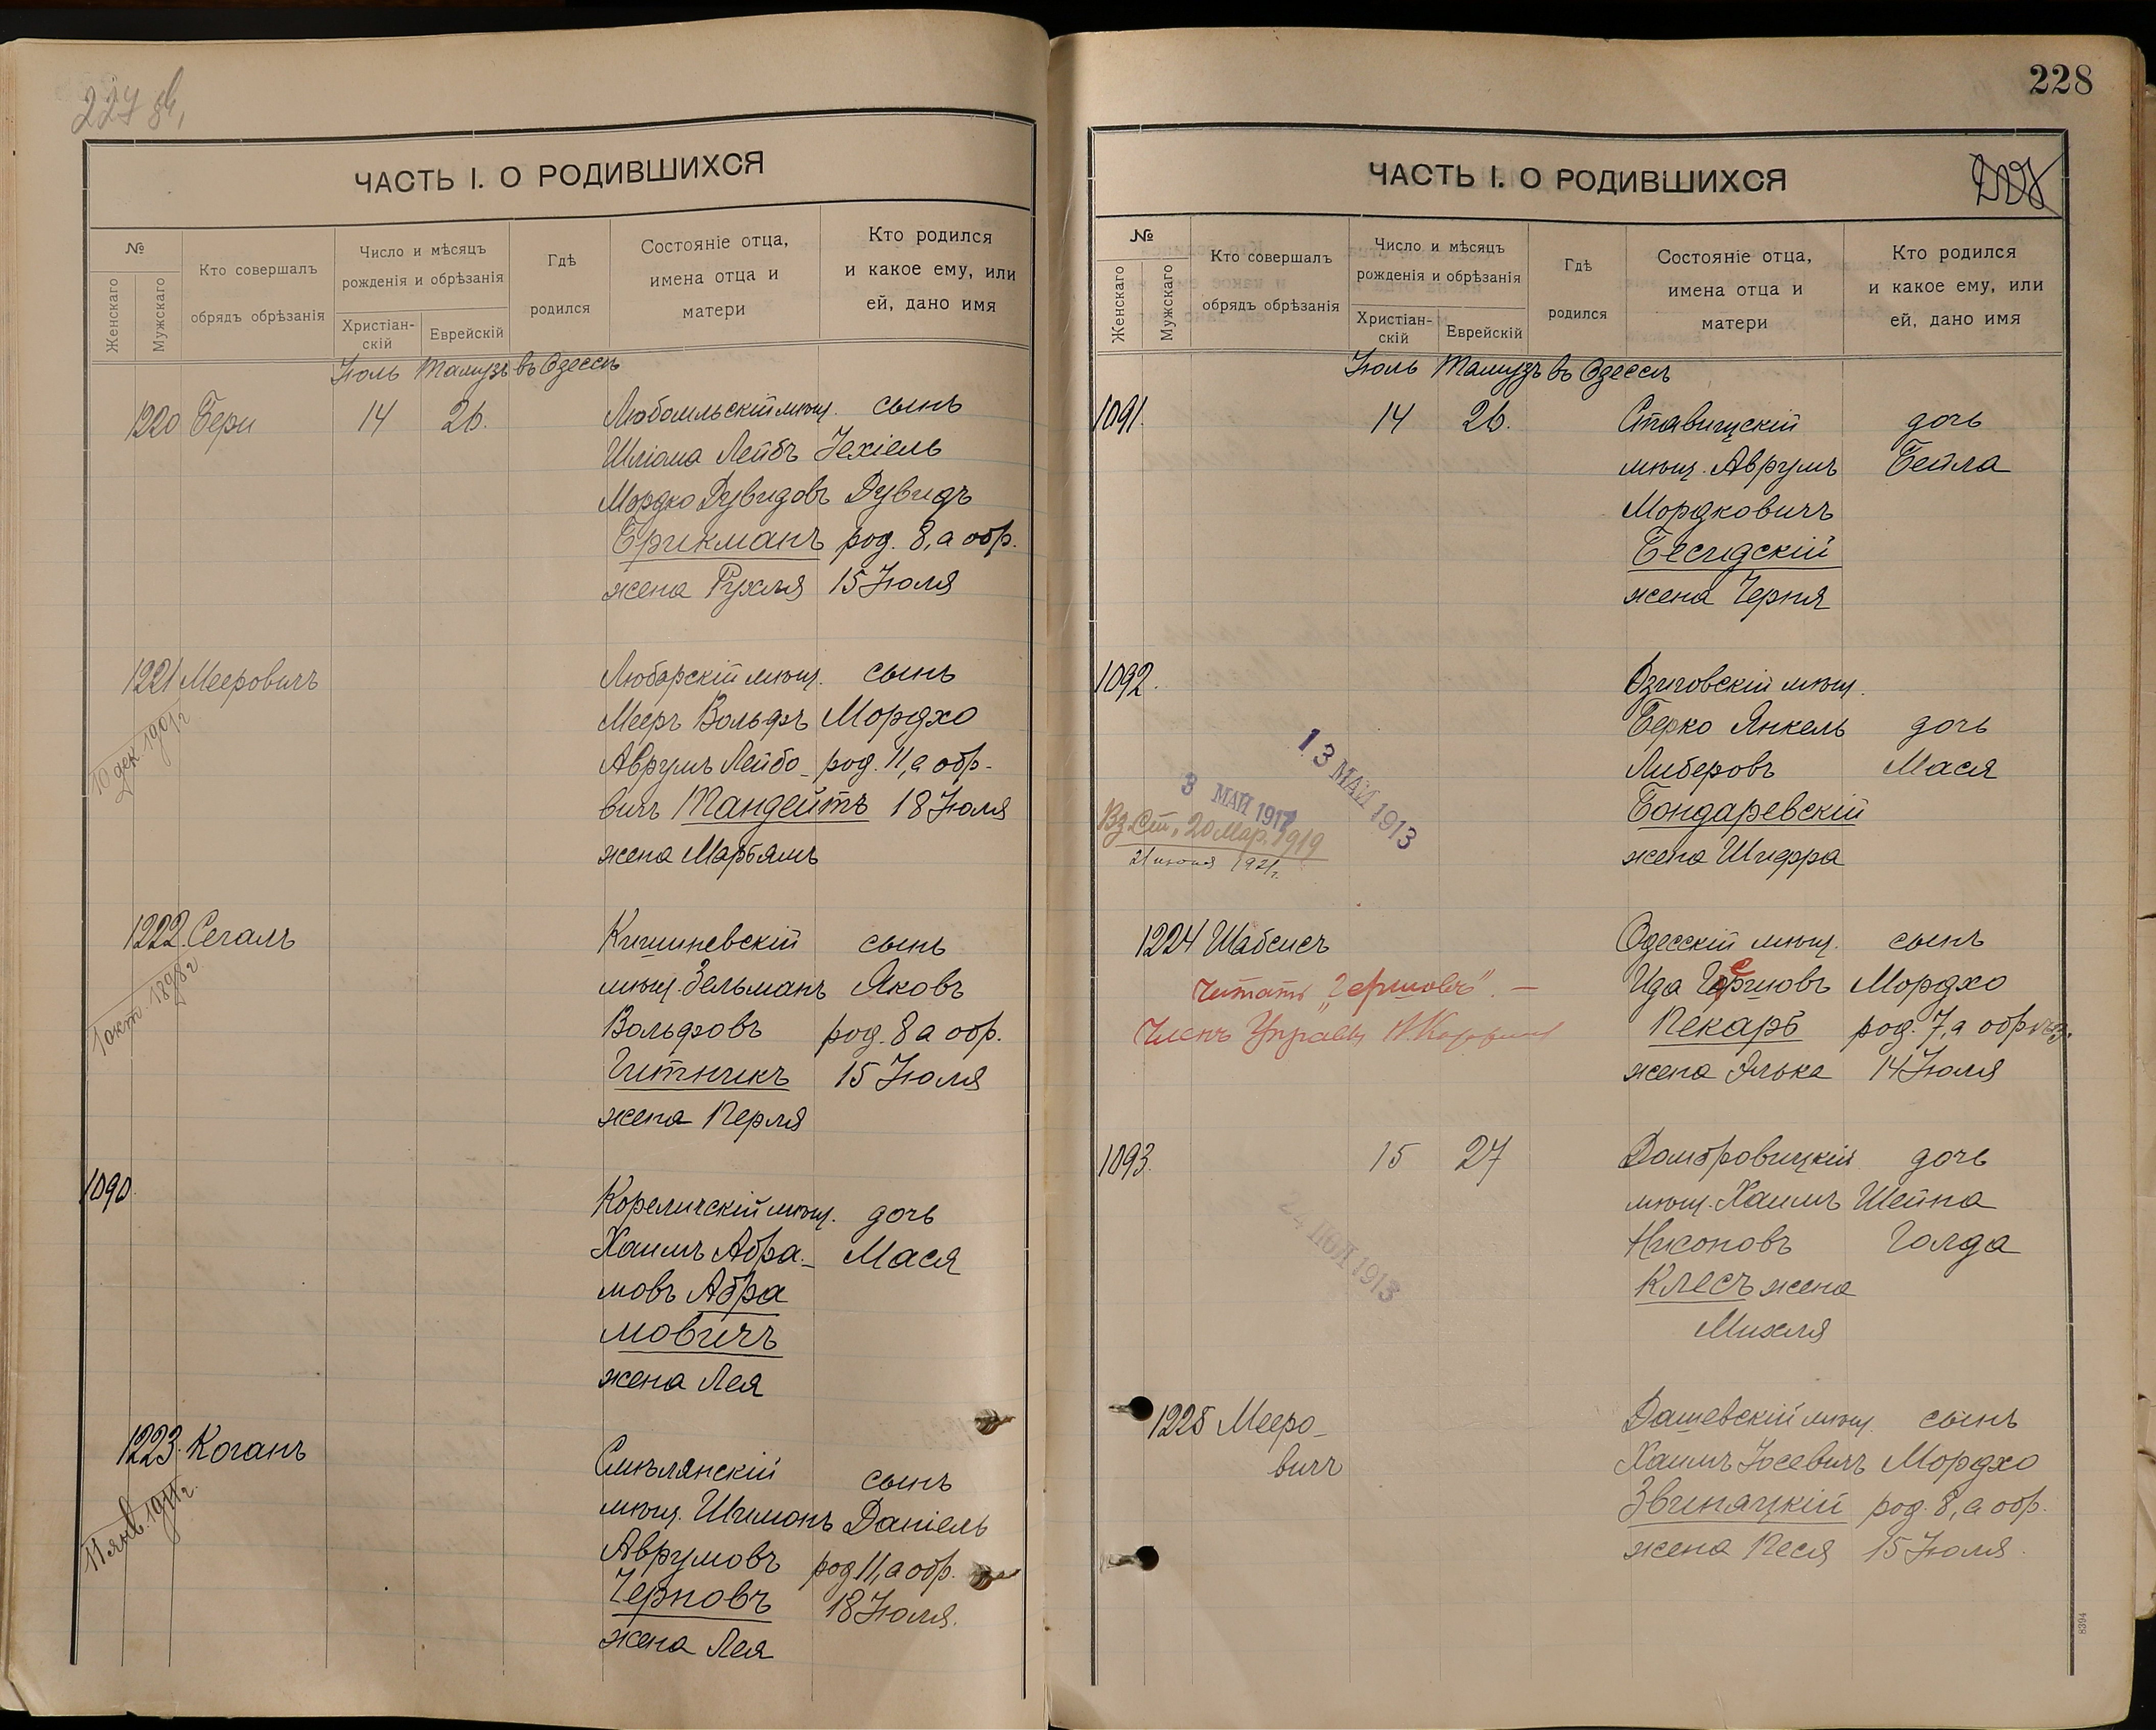 227 об,
ЧАСТЬ I. О РОДИВШИХСЯ
№
Женскаго
Мужскаго
Кто совершалъ
обрядъ обрѣзанія
Число и мѣсяцъ
рожденія и обрѣзанія
Христіан-
скій
Еврейскій
Гдѣ
родился
Состояніе отца,
имена отца и
матери
Кто родился
и какое ему, или
ей, дано имя
Іюль Тамузъ въ Одессѣ
1220 Бери 14 26. Любомльскій мѣщ. сынъ
Шліома Лейбъ Іехіель
Мордко Дувидовъ Дувидъ
Брикманъ род. 8, а обр.
жена Рухля 15 Іюля
1221 Мееровичъ Любарскій мѣщ. сынъ
10 дек. 1901 г
Мееръ Вольфъ Мордхо
Аврумъ Лейбо- род. 11, а обр.
вичъ Тандейтъ 18 Іюля
жена Марьямъ
1222. Сегалъ Кишиневскій сынъ
1 окт. 1898 г
мѣщ. Зельманъ Яковъ
Вольфовъ род. 8 а обр.
Читникъ 15 Іюля
жена Перля
1090. Кореличскій мѣщ. дочь
Хаимъ Абра- Мася
мовъ Абра
мовичъ
жена Лея
1223. Коганъ Смѣлянскій сынъ
11 янв. 1911 г.
мѣщ. Шимонъ Даніель
Аврумовъ род 11, а обр.
Черновъ 18 Іюля.
жена Лея
228
ЧАСТЬ I. О РОДИВШИХСЯ
№
Женскаго
Мужскаго
Кто совершалъ
обрядъ обрѣзанія
Число и мѣсяцъ
рожденія и обрѣзанія
Христіан-
скій
Еврейскій
Гдѣ
родился
Состояніе отца,
имена отца и
матери
Кто родился
и какое ему, или
ей, дано имя
Іюль Тамузъ въ Одессѣ
1091. 14 26. Ставищскій дочь
мѣщ. Аврумъ Бейла
Мордковичъ
Бесидскій
жена Черня
1092. Озиговскій мѣщ.
Берко Янкель дочь
Либеровъ Мася
Бондаревскій
жена Шифра
13 МАЙ 1913
3 МАЙ 1917
20 Мар. 1919
21 июня 1921 г.
1224 Шабсисъ Одесскій мѣщ. сынъ
Читать „Гершовъ". — Ида Гершовъ Мордхо
Членъ Управы Пекарь род. 7, а обрѣз.
жена Элька 14 Іюля
1093. 15 27 Домбровицкій дочь
мѣщ. Хаимъ Шейна
Нисоновъ Голда
Клесъ жена
Михля
1913
1225 Мееро- Дашевскій мѣщ. сынъ
вичъ Хаимъ Іосевичъ Мордхо
Звиняцкій род. 8, а обр.
жена Песя 15 Іюля.
8394